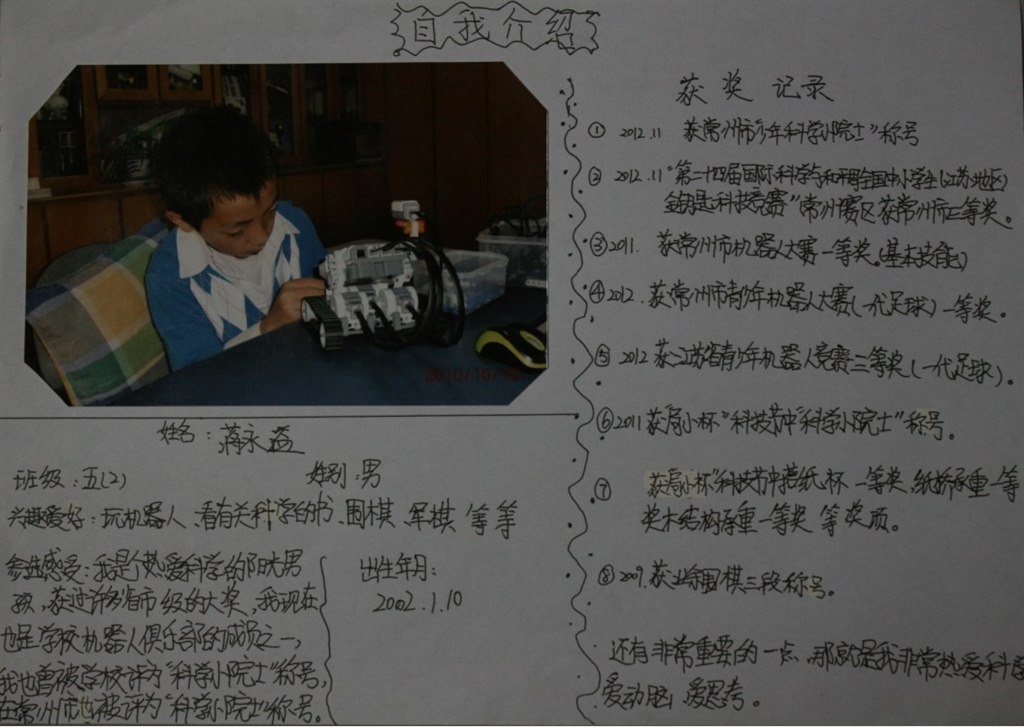 自我介绍
姓名：蒋永益
班级：五(2)
性别：男
兴趣爱好：玩机器人、看有关科学的书、围棋、军棋等等
参选感受：我是个热爱科学的阳光男
孩，获过许多省市级的大奖，我现在
也是学校机器人俱乐部的成员之一，
我也曾被学校评为"科学小院士"称号，
在常州市也被评为"科学小院士"称号。
出生年月：
2002.1.10
获奖记录
① 2012.11 获常州市"少年科学小院士"称号
② 2012.11"第二十四届国际科学与和平周全国中小学生(江苏地区)
金钥匙科技竞赛"常州赛区获常州市二等奖。
③ 2011. 获常州市机器人大赛一等奖。(基本技能)
④ 2012. 获常州市青少年机器人大赛(一代足球)一等奖。
⑤ 2012 获江苏省青少年机器人竞赛三等奖(一代足球)。
⑥ 2011 获"局小杯"科技节中"科学小院士"称号。
⑦ 获"局小杯"科技节中 纸杯一等奖，纸桥承重一等
奖木结构承重一等奖等奖项。
⑧ 2009. 获业余围棋三段称号。
还有非常重要的一点，那就是我非常热爱科学
爱动脑，爱思考。
2010/10/